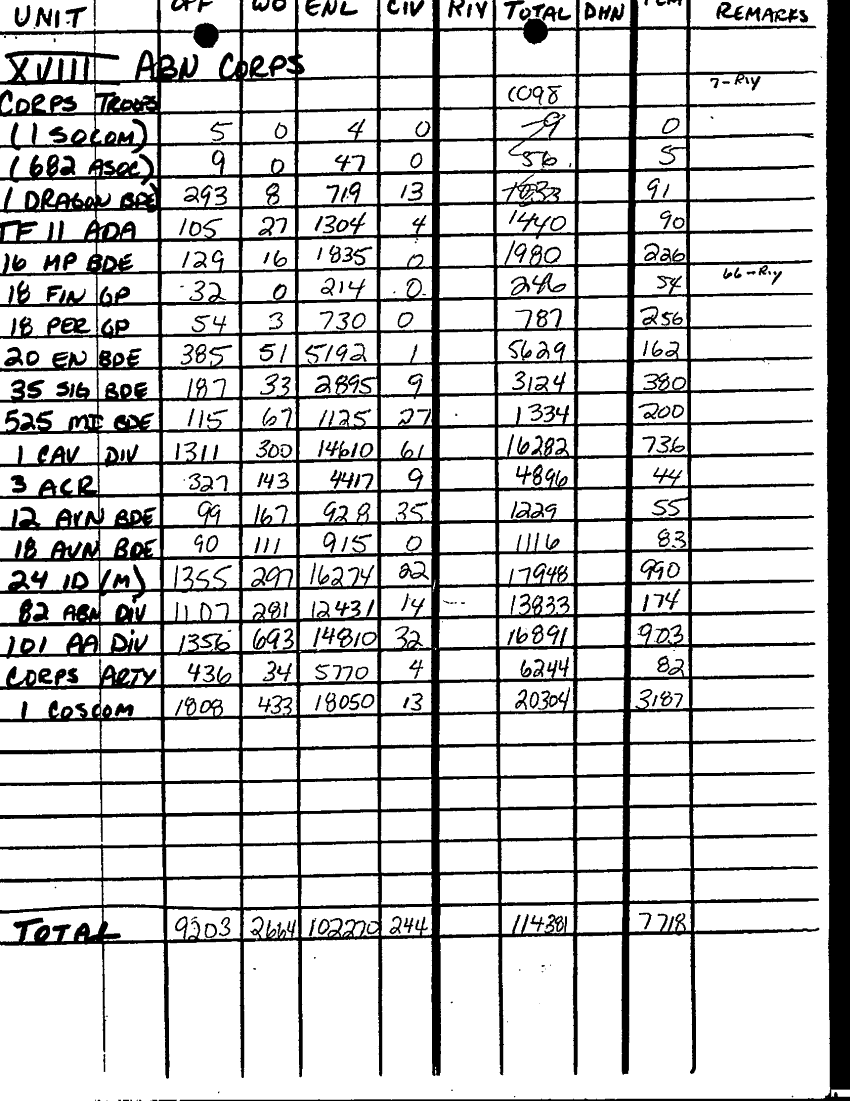 UNIT OFF WO ENL CIV RIY TOTAL DHN REMARKS
XVIII ABN CORPS
CORPS TROOPS 1098 7-Riy
(1 SOCOM) 5 0 4 0 9 0
(682 ASOC) 9 0 47 0 56 5
1 DRAGON BDE 293 8 719 13 1033 91
TF 11 ADA 105 27 1304 4 1440 90
16 MP BDE 129 16 1835 0 1980 226
18 FIN GP 32 0 214 0 246 54 66-Riy
18 PER GP 54 3 730 0 787 256
20 EN BDE 385 51 5192 1 5629 162
35 SIG BDE 187 33 2895 9 3124 380
525 MI BDE 115 67 1125 27 1334 200
1 CAV DIV 1311 300 14610 61 16282 736
3 ACR 327 143 4417 9 4896 44
12 AVN BDE 99 167 928 35 1229 55
18 AVN BDE 90 111 915 0 1116 83
24 ID (M) 1355 297 16274 22 17948 990
82 ABN DIV 1107 281 12431 14 13833 174
101 AA DIV 1356 693 14810 32 16891 903
CORPS ARTY 436 34 5770 4 6244 82
1 COSCOM 1808 433 18050 13 20304 3187
TOTAL 9203 2664 102270 244 114381 7718